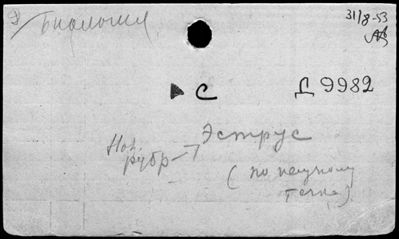 Биология
31/8-53
С Д 9982
Эструс
Нов. рубр →
(по
течке)